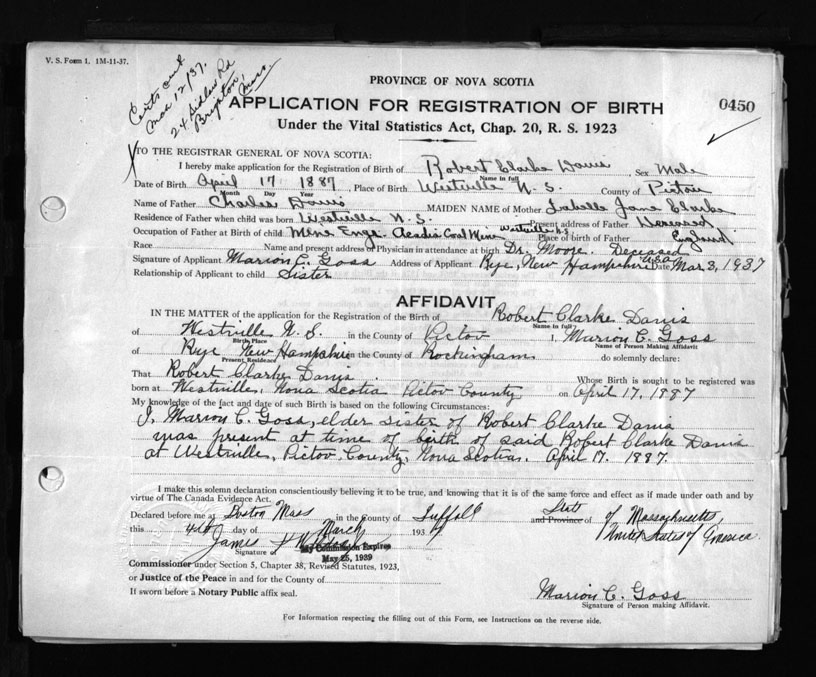 V. S. Form 1. 1M-11-37.
Certs out
Mar 12/37.
24 Sidlaw Rd
Brighton,
Mass.
PROVINCE OF NOVA SCOTIA
APPLICATION FOR REGISTRATION OF BIRTH
0450
Under the Vital Statistics Act, Chap. 20, R. S. 1923
TO THE REGISTRAR GENERAL OF NOVA SCOTIA:
I hereby make application for the Registration of Birth of Robert Clarke Davis Sex Male
Name in full
Date of Birth April 17 1887 Place of Birth Westville N. S. County of Pictou
Month Day Year
Name of Father Charles Davis MAIDEN NAME of Mother Isabelle Jane Clarke
Residence of Father when child was born Westville N. S. Present address of Father Deceased
Occupation of Father at Birth of child Mine Engr. Acadia Coal Mine Westville N.S. Place of birth of Father England
Race Name and present address of Physician in attendance at birth Dr. Moore. Deceased
Signature of Applicant Marion C. Goss Address of Applicant Rye, New Hampshire U.S.A. Date Mar 3, 1937
Relationship of Applicant to child Sister
AFFIDAVIT
IN THE MATTER of the application for the Registration of the Birth of Robert Clarke Davis
Name in full
of Westville N. S. in the County of Pictou I, Marion C. Goss
Birth Place Name of Person Making Affidavit
of Rye New Hampshire in the County of Rockingham do solemnly declare:
Present Residence
That Robert Clarke Davis Whose Birth is sought to be registered was
born at Westville, Nova Scotia Pictou County on April 17, 1887
My knowledge of the fact and date of such Birth is based on the following Circumstances:
I, Marion C. Goss, elder sister of Robert Clarke Davis
was present at time of birth of said Robert Clarke Davis
at Westville, Pictou, County, Nova Scotia. April 17. 1887.
I make this solemn declaration conscientiously believing it to be true, and knowing that it is of the same force and effect as if made under oath and by
virtue of The Canada Evidence Act.
Declared before me at Boston Mass in the County of Suffolk State and Province of of Massachusetts,
this 4th day of March 1937 United States of America
James
Signature of My Commission Expires
May 25, 1939
Commissioner under Section 5, Chapter 38, Revised Statutes, 1923,
or Justice of the Peace in and for the County of
If sworn before a Notary Public affix seal.
Marion C. Goss
Signature of Person making Affidavit.
For Information respecting the filling out of this Form, see Instructions on the reverse side.